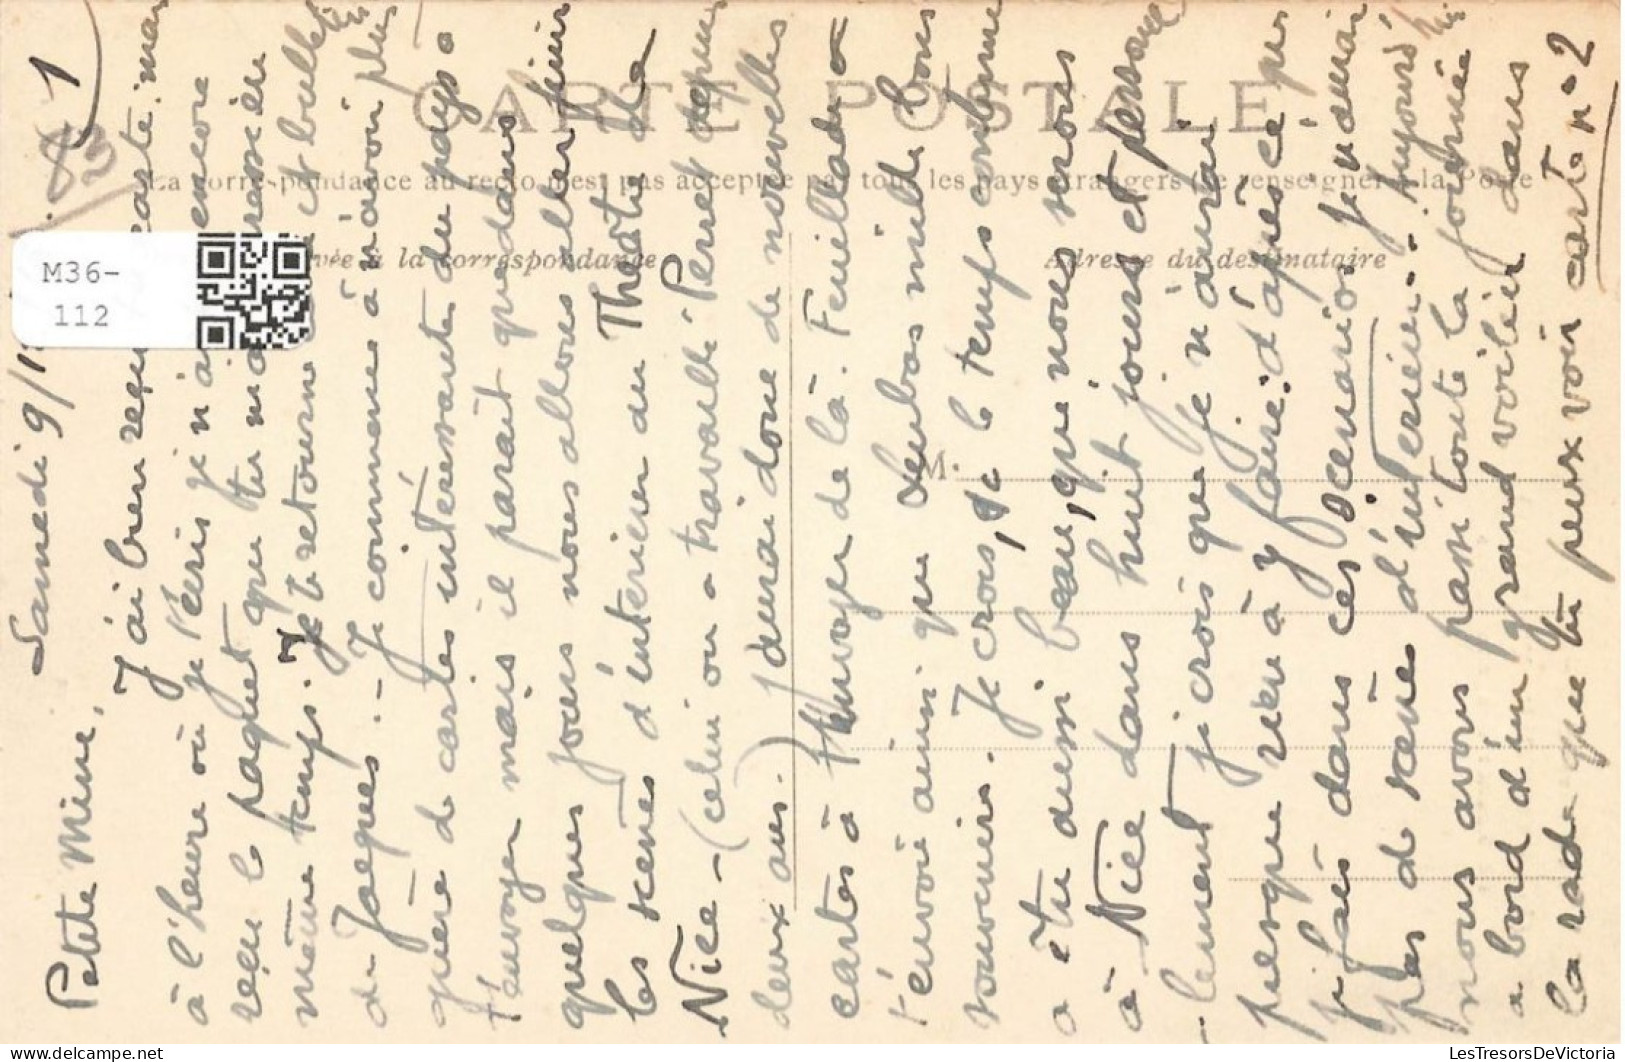 Samedi 9/1
1
Petite Mine,
J'ai bien reçu carte mais
à l'heure où je t'écris je n'ai encore
reçu le paquet que tu m'a
même temps. Je te retourne et bulle
de Jacques. - Je commence à n'avoir plus
guère de cartes intéressantes du pays à
t'envoyer mais il parait que dans
quelques jours nous allons aller finir
les scènes d'intérieur au Théâtre de
Nice - (celui où a travaillé Perret depuis
deux ans.) J'aurai donc de nouvelles
cartes à t'envoyer de là. Feuillade a
t'envoie ainsi que Leubas mille bons
souvenirs. Je crois, si le temps continue
a être aussi beau, que nous serons
à Nice dans huit jours et personnel
-lement je crois que je n'aurai
presque rien à y faire: d'après ce que
je fais dans ces scénarios je n'aurai
pas de scène d'intérieur - Aujourd'hui
nous avons passé toute la journée
a bord d'un grand voilier dans
la rade que tu peux voir carte n° 2
CARTE POSTALE
La correspondance au recto n'est pas acceptée par tous les pays étrangers (se renseigner à la Poste
vée à la correspondance
Adresse du destinataire
M.
M36-
112
delcampe.net
LesTresorsDeVictoria